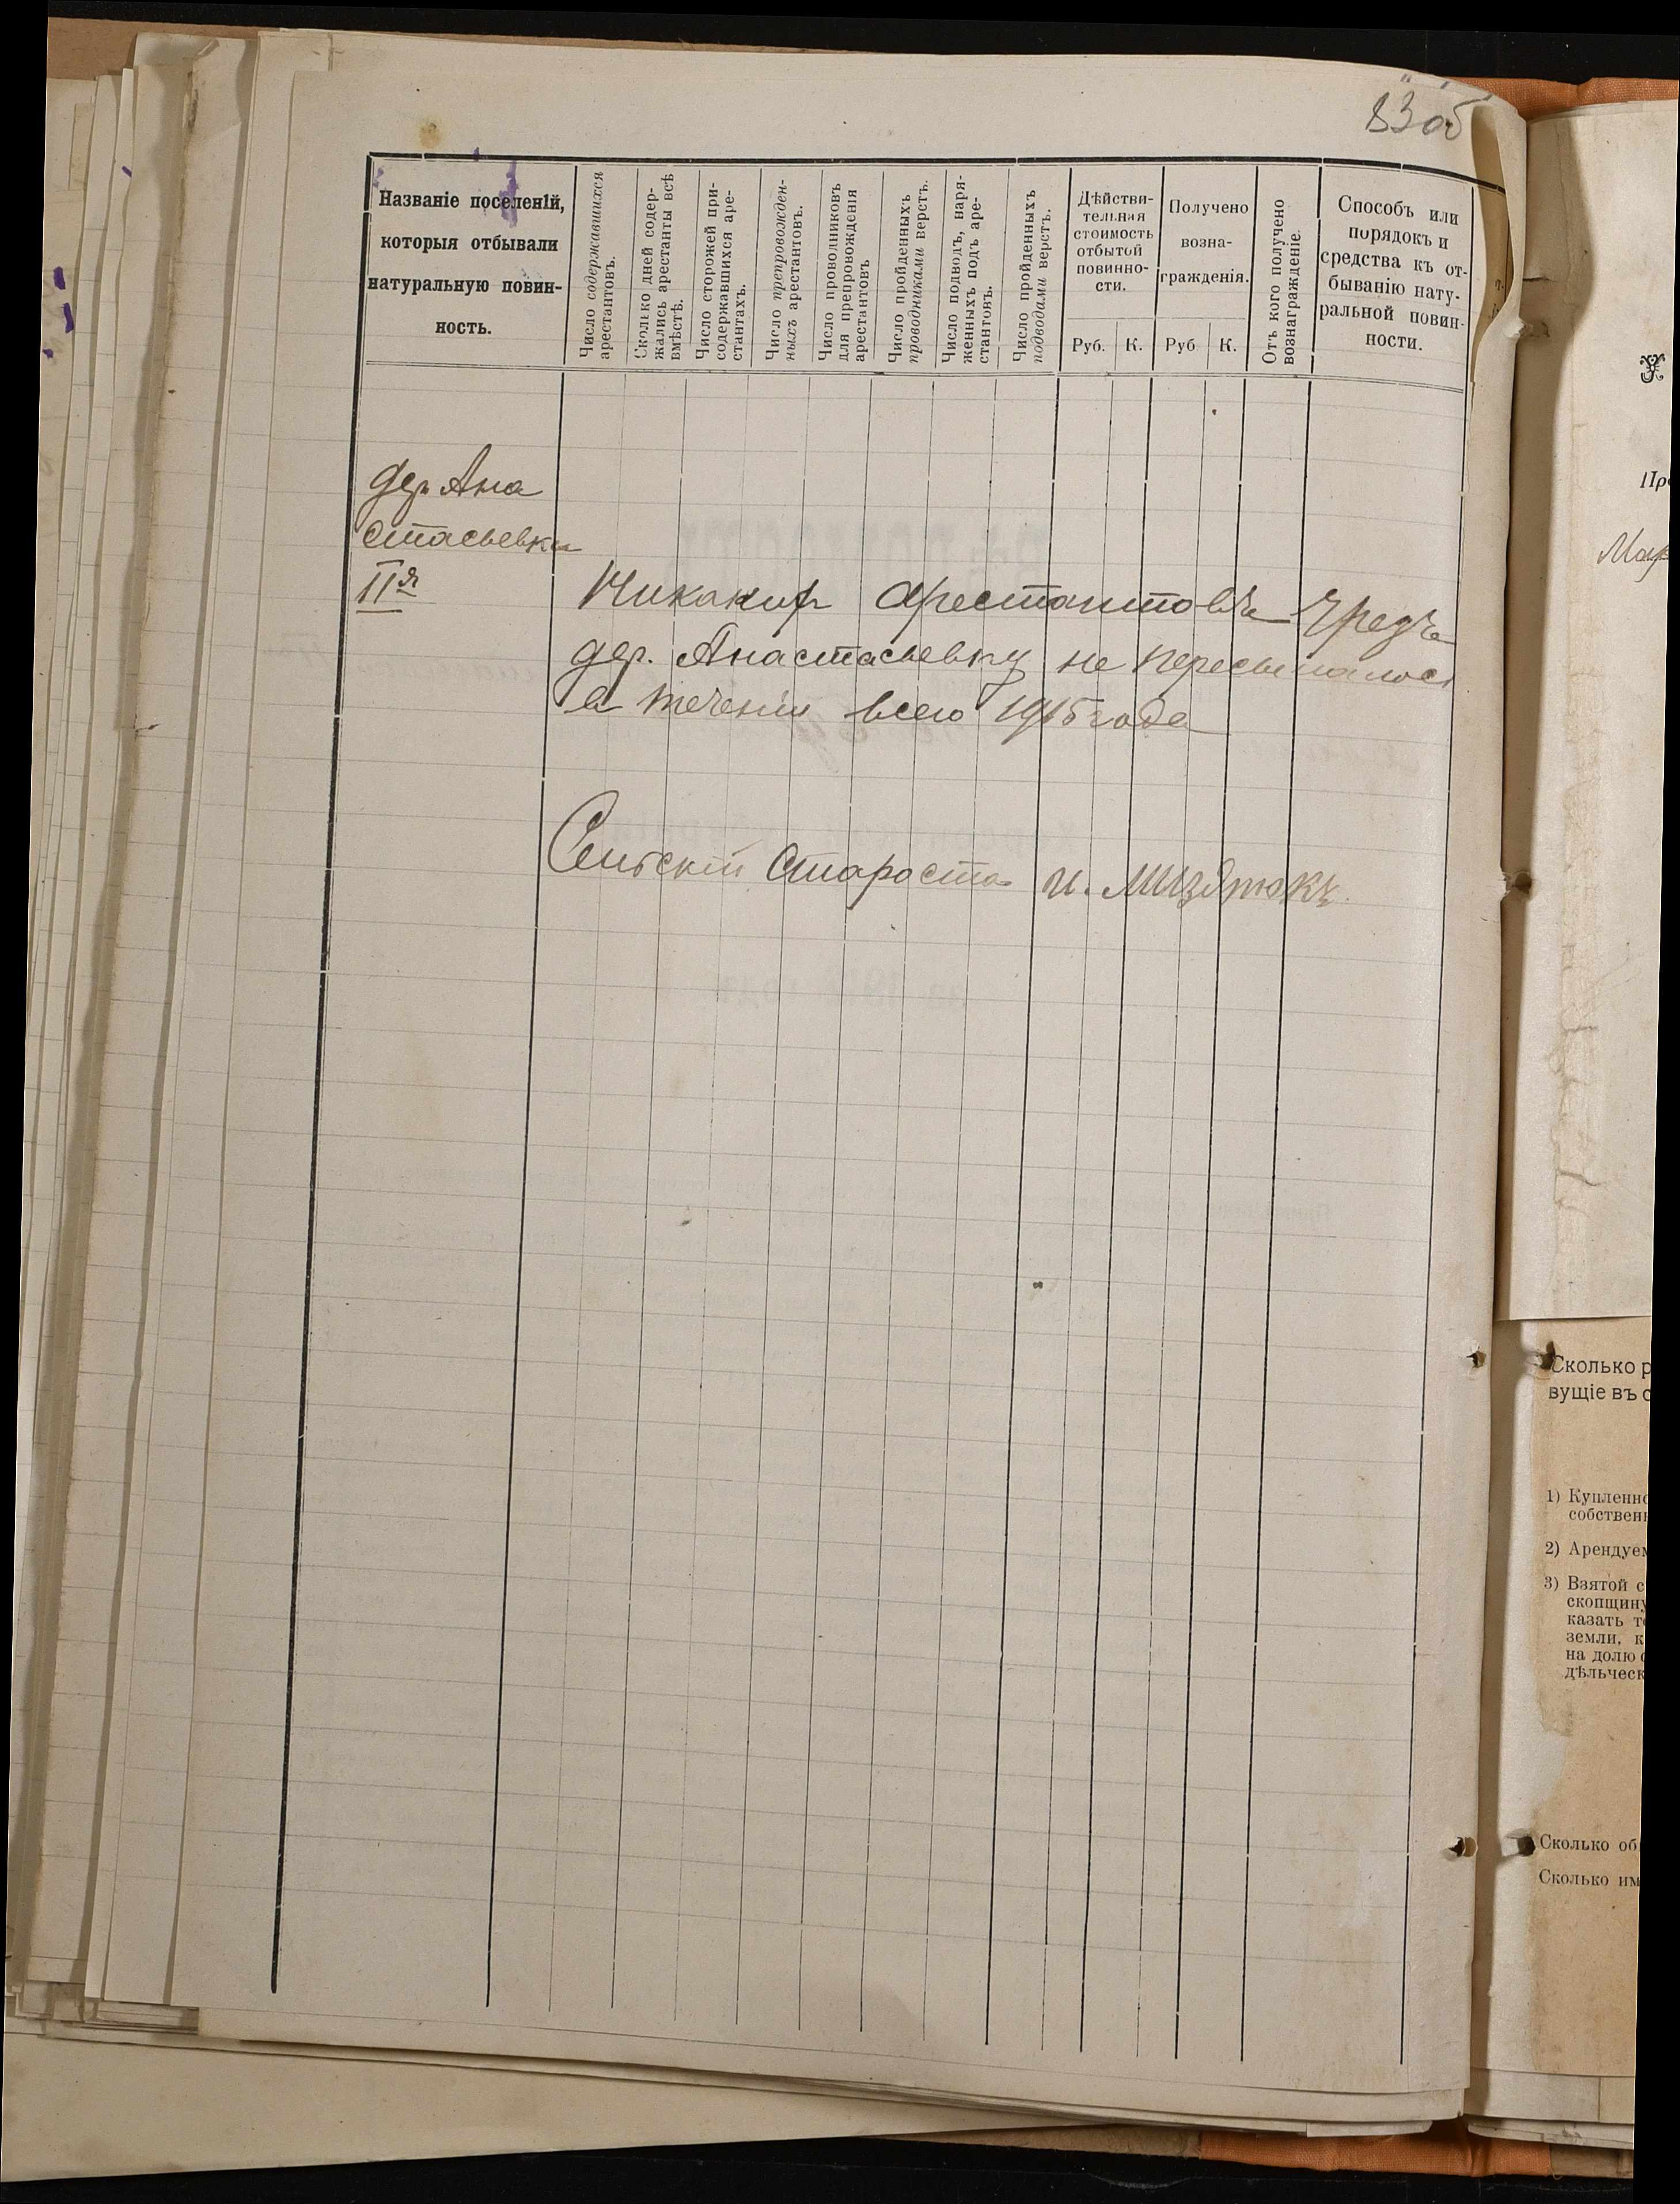 83об
Названіе поселеній,
которыя отбывали
натуральную повин-
ность.
Число содержавшихся
арестантовъ.
Сколько дней содер-
жались арестанты всѣ
вмѣстѣ.
Число сторожей при-
содержавшихся аре-
стантахъ.
Число препровожден-
ныхъ арестантовъ.
Число проводниковъ
для препровожденія
арестантовъ
Число пройденныхъ
проводниками верстъ.
Число подводъ, наря-
женныхъ подъ аре-
стантовъ.
Число пройденныхъ
подводами верстъ.
Дѣйстви-
тельная
стоимость
отбытой
повинно-
сти.
Руб. К.
Получено
возна-
гражденія.
Руб К.
Отъ кого получено
вознагражденіе.
Способъ или
порядокъ и
средства къ от-
быванію нату-
ральной повин-
ности.
дер. Ана
стасьевка
IIя
Никаких арестантовъ чрезъ
дер. Анастасьевку не пересылалось
в теченіи всего 1915 года
Сельскій Староста И. Миздрюкъ
Сколько
вущіе въ
1) Купленно
собствен
2) Арендуем
3) Взятой с
скопщину
казать
земли, к
на долю
дѣльческ
Сколько об
Сколько им